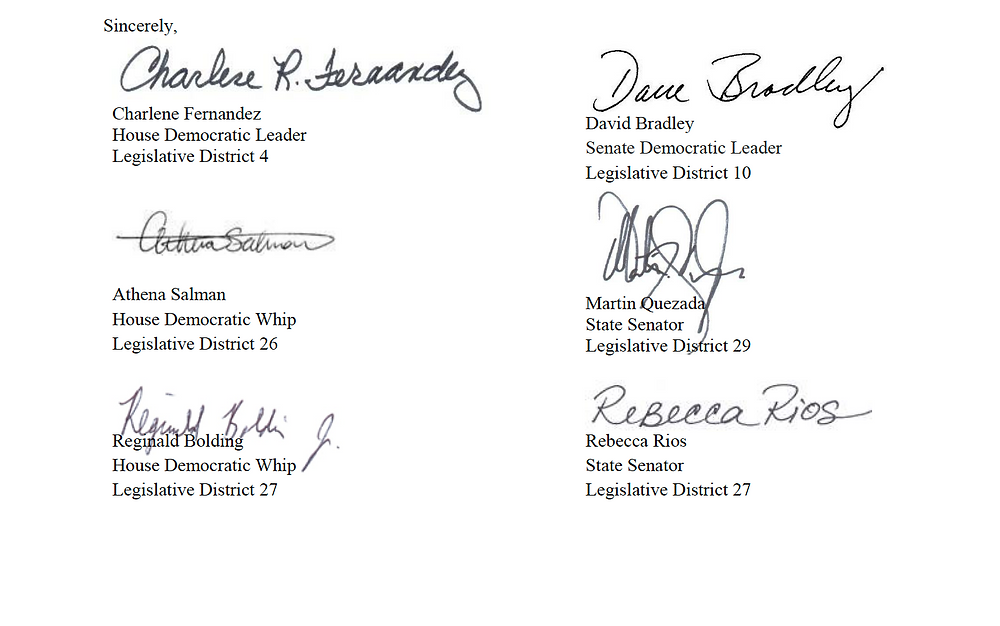 Sincerely,
Charlene R. Fernandez
Charlene Fernandez
House Democratic Leader
Legislative District 4
Athena Salman
Athena Salman
House Democratic Whip
Legislative District 26
Reginald Bolding Jr.
Reginald Bolding
House Democratic Whip
Legislative District 27
Dave Bradley
David Bradley
Senate Democratic Leader
Legislative District 10
Martin Quezada
State Senator
Legislative District 29
Rebecca Rios
Rebecca Rios
State Senator
Legislative District 27